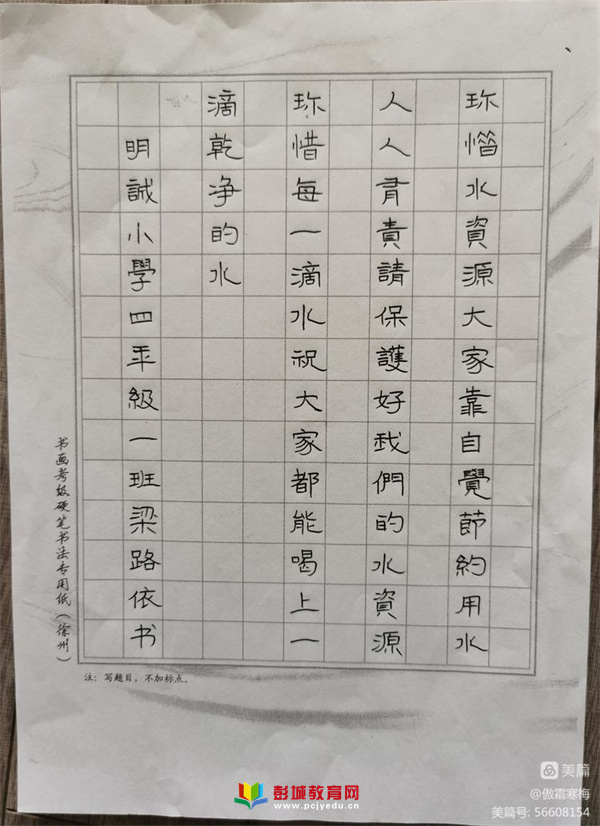 珎惜水資源大家靠自覺節約用水
人人有責請保護好我們的水資源
珎惜每一滴水祝大家都能喝上一
滴乾净的水
明誠小學四年級一班梁路依书
书画考级硬笔书法专用纸（徐州）
注：写题目，不加标点。
彭城教育网
www.pcjyedu.cn
美篇
@傲霜寒梅
美篇号: 56608154